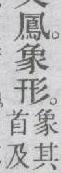 鳳。象形。
象其
首及